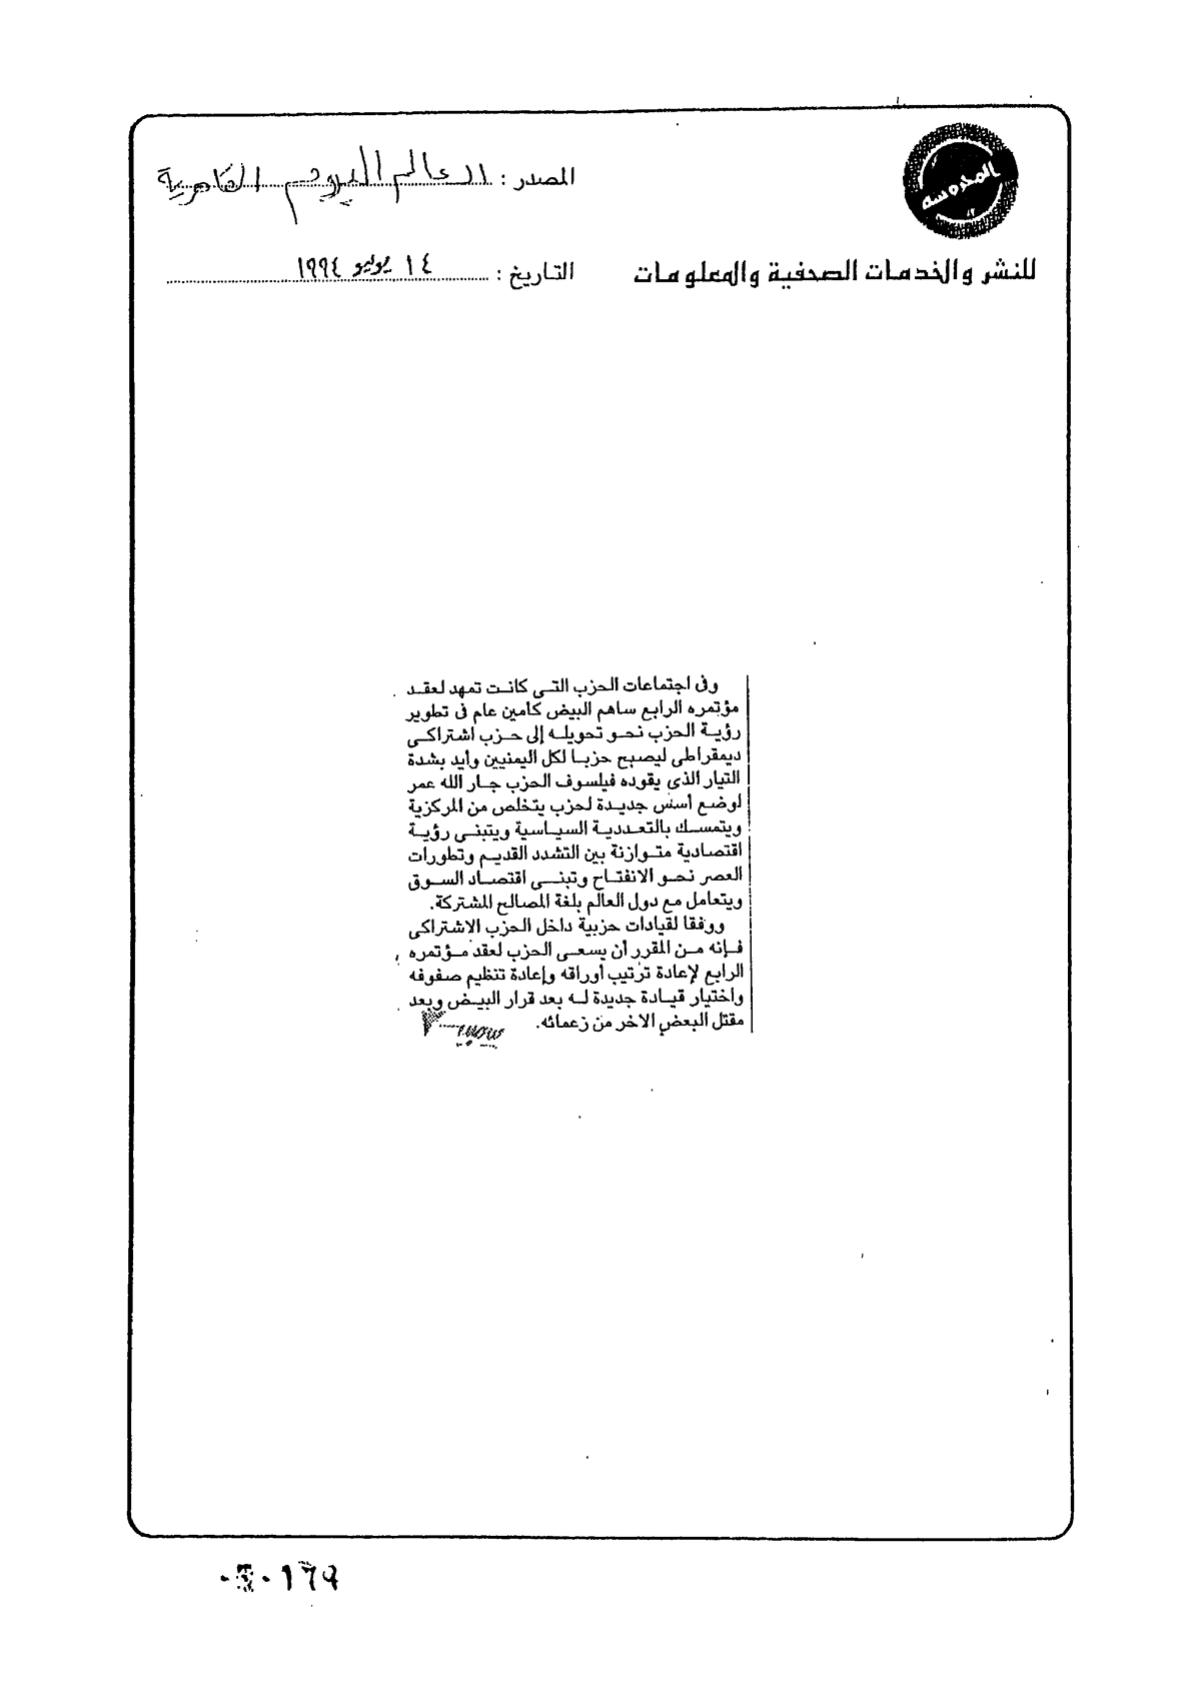 المحروسة
المصدر : العالم اليوم القاهرية
للنشر والخدمات الصحفية والمعلومات
التاريخ : ١٤ يوليو ١٩٩٤
وفى اجتماعات الحزب التى كانت تمهد لعقد
مؤتمره الرابع ساهم البيض كأمين عام فى تطوير
رؤية الحزب نحو تحويله إلى حزب اشتراكى
ديمقراطى ليصبح حزبا لكل اليمنيين وأيد بشدة
التيار الذى يقوده فيلسوف الحزب جار الله عمر
لوضع أسس جديدة لحزب يتخلص من المركزية
ويتمسك بالتعددية السياسية ويتبنى رؤية
اقتصادية متوازنة بين التشدد القديم وتطورات
العصر نحو الانفتاح وتبنى اقتصاد السوق
ويتعامل مع دول العالم بلغة المصالح المشتركة.
ووفقا لقيادات حزبية داخل الحزب الاشتراكى
فإنه من المقرر أن يسعى الحزب لعقد مؤتمره
الرابع لإعادة ترتيب أوراقه وإعادة تنظيم صفوفه
واختيار قيادة جديدة له بعد قرار البيض وبعد
مقتل البعض الاخر من زعمائه.